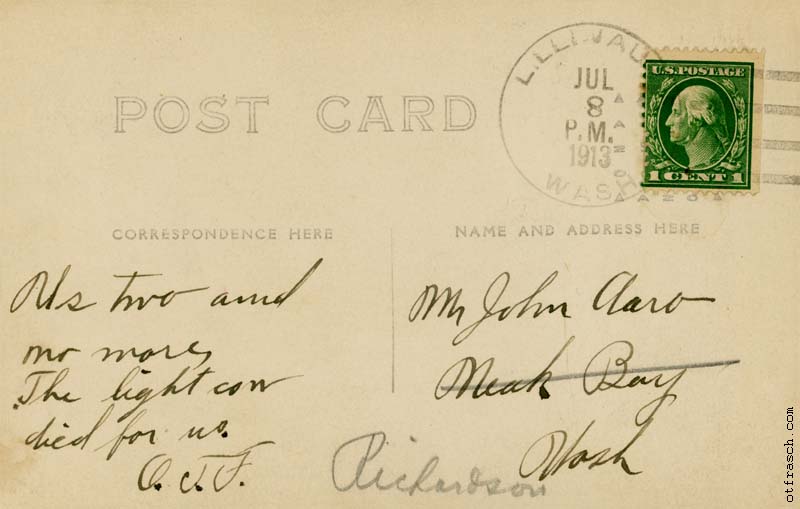 LILLIWAU
JUL
8
P.M.
1913
WASH
U.S. POSTAGE
1 CENT 1
POST CARD
CORRESPONDENCE HERE
NAME AND ADDRESS HERE
Us two and
no more,
The light cow
died for us.
O.T.F.
Mr John Aaro
Neah Bay
Wash
Richardson
otfrasch.com